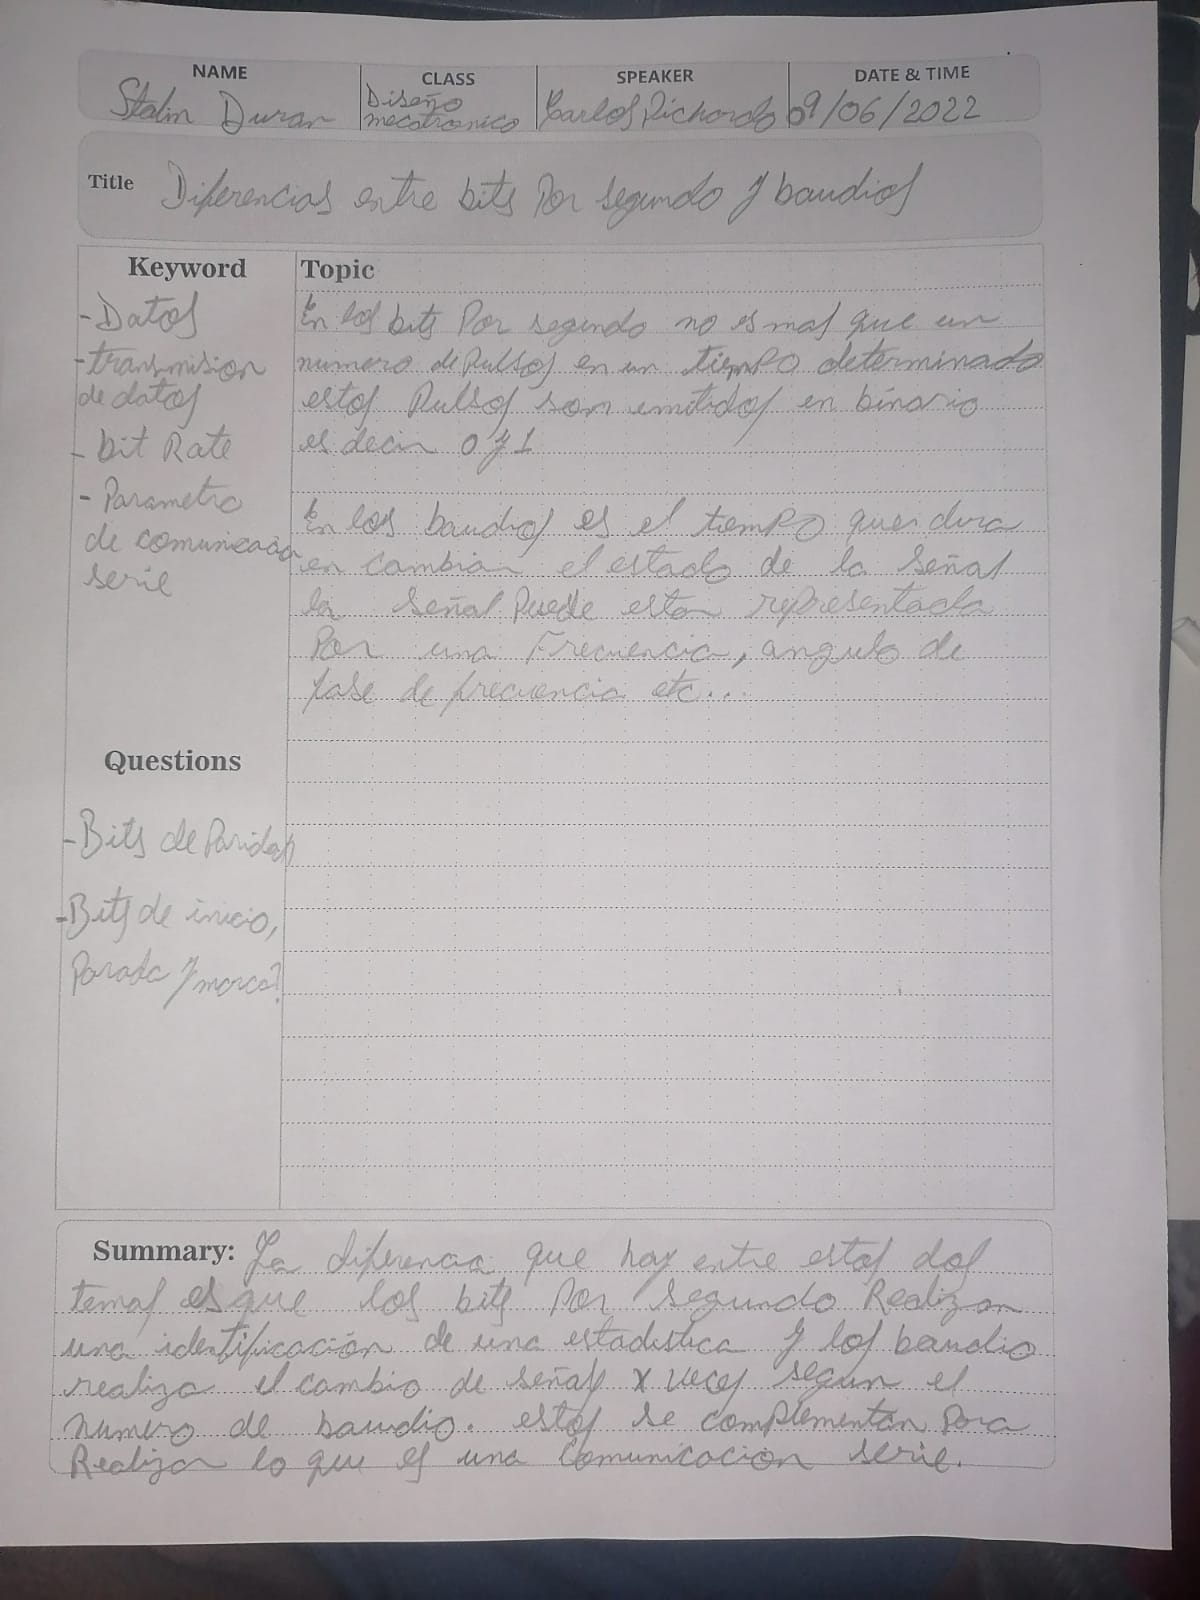 NAME CLASS SPEAKER DATE & TIME
Stalin Duran Diseño mecatronico Carlos Pichardo 09/06/2022
Title Diferencias entre bits Por segundo y baudios
Keyword
- Datos
- transmision
de datos
- bit Rate
- Parametro
de comunicacion
serie
Topic
En los bits Por segundo no es mas que un
numero de Pulsos en un tiempo determinado
estos Pulsos son emitidos en binario
es decir 0 y 1
En los baudios es el tiempo que dura
en cambiar el estado de la señal
la señal Puede estar representada
Por una Frecuencia, angulo de
fase de frecuencia etc...
Questions
- Bits de Paridad
- Bits de inicio,
Parada y marca?
Summary: La diferencia que hay entre estos dos
temas es que los bits Por segundo Realizan
una identificación de una estadistica y los baudio
realiza el cambio de señal x veces segun el
numero de baudio. estos se complementan Para
Realizar lo que es una Comunicacion serie.